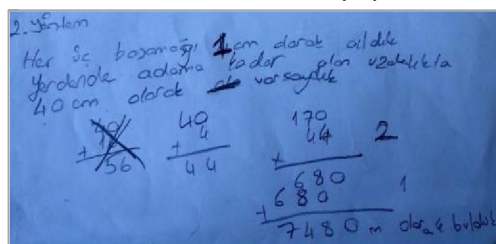 2. yöntem
Her üç basamağı 1 cm olarak aldık
yerdende adama kadar olan uzaklıkla
40 cm olarak varsaydık
40 170
+ 4 44 2
+ 56 44 x
680 1
+ 680
7480 m olarak bulduk